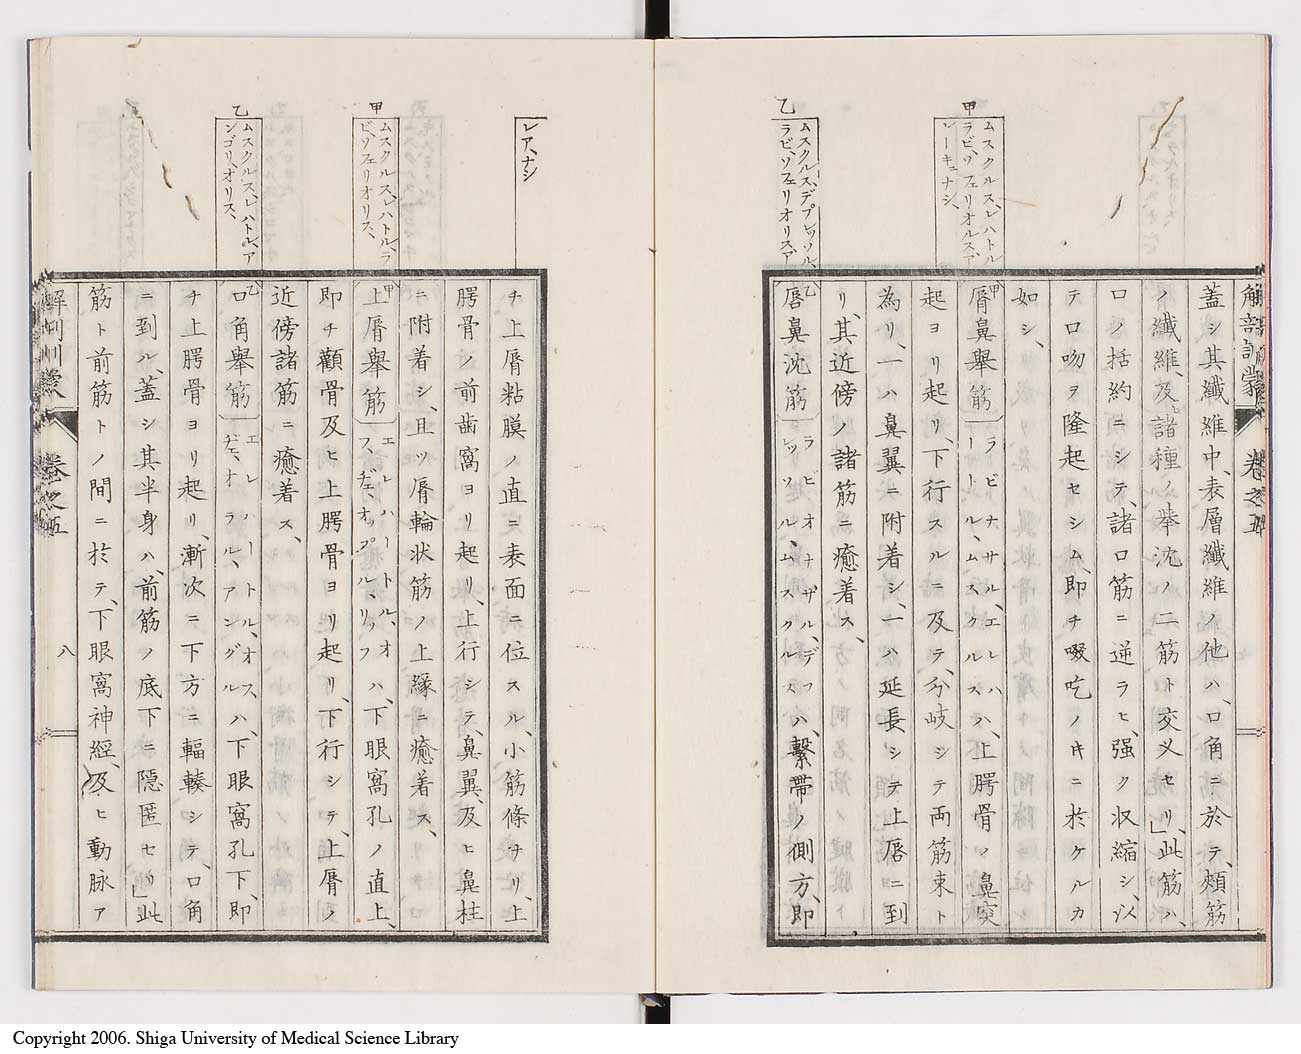 甲
ムスクルス、レハトル
ラビ、ソフェリオルス、ア
レーキュナシ、
乙
ムスクルス、デプレッソル、
ラビ、ソフェリオリス、ア
レア、ナシ
甲
ムスクルス、レハトル、ラ
ビ、ソフェリオリス、
乙
ムスクルス、レハトル、ア
ンゴリ、オリス、
解剖訓蒙
卷之五
蓋シ其纎維中、表層纎維ノ他ハ、口角ニ於テ、頰筋
ノ纎維、及ヒ諸種ノ擧沈ノ二筋ト交叉セリ、」此筋ハ、
口ノ括約ニシテ、諸口筋ニ逆ラヒ、强ク収縮シ、以
テ口吻ヲ隆起セシム、即チ啜吃ノ𪜈ニ於ケルカ
如シ、
甲
脣鼻擧筋
ラビナサル、エレハ
ートル、ムスクルス
ハ、上腭骨ノ鼻突
起ヨリ起リ、下行スルニ及テ、分岐シテ両筋束ト
為リ、一ハ鼻翼ニ附着シ、一ハ延長シテ上唇ニ到
リ、其近傍ノ諸筋ニ癒着ス、
乙
唇鼻沈筋
ラビオナザル、デフ
レッソル、ムスクルス
ハ、繋帯ノ側方、即
チ上脣粘膜ノ直ニ表面ニ位スル、小筋條ナリ、上
腭骨ノ前歯窩ヨリ起リ、上行シテ、鼻翼、及ヒ鼻柱
ニ附着シ、且ツ脣輪状筋ノ上縁ニ癒着ス、
甲
上脣擧筋
エレハートル、オ
フ、ヂェ、オップル、リップ
ハ、下眼窩孔ノ直上、
即チ顴骨及ヒ上腭骨ヨリ起リ、下行シテ、上脣ノ
近傍諸筋ニ癒着ス、
乙
口角擧筋
エレハートル、オフ、
ヂェ、オラル、アングル
ハ、下眼窩孔下、即
チ上腭骨ヨリ起リ、漸次ニ下方ニ輻輳シテ、口角
ニ到ル、蓋シ其半身ハ、前筋ノ底下ニ隠匿セリ、」此
筋ト前筋トノ間ニ於テ、下眼窩神經、及ヒ動脉ア
解剖訓蒙
卷之五
八
Copyright 2006. Shiga University of Medical Science Library